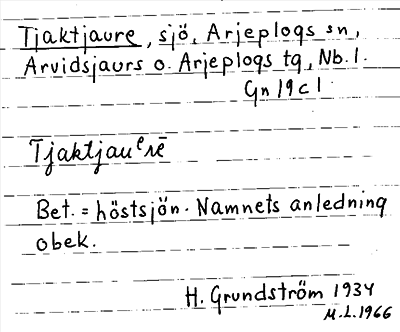 Tjaktjaure, sjö, Arjeplogs sn,
Arvidsjaurs o. Arjeplogs tg, Nb. l.
Gn 19 c 1
Tjaktjauᵉrē
Bet. = höstsjön. Namnets anledning
obek.
H. Grundström 1934
M.L. 1966